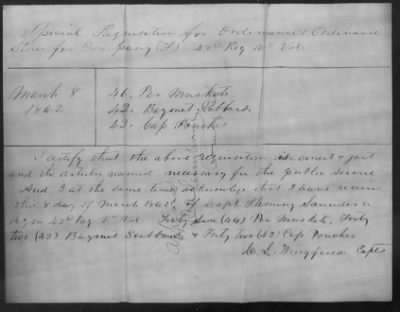 Special Requisition for Ordinance & Ordinance
Stores for Company (F) 42d Reg Va Vol
March 8
1862
46. Per Muskets
42. Bayonet Scabbards
42. Cap Pouches
I certify that the above requisition is correct & just
and the articles named necessary for the public service
And I at the same time acknowledge that I have received
this 8 day of March 1862 of Capt Fleming Saunders
42d Reg Va Vol Forty Six (46) Per Muskets, Forty
two (42) Bayonet Scabbards & Forty two (42) Cap Pouches
Wingfield Capt